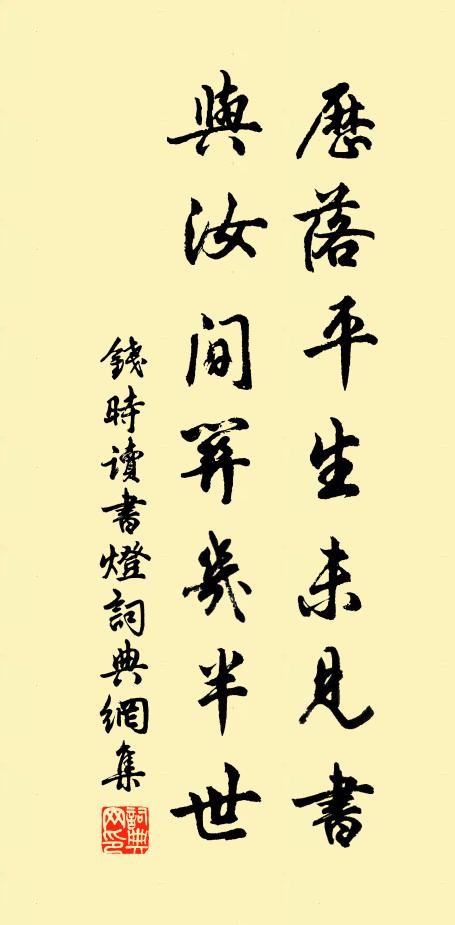 歷落平生未見書
與汝間關幾半世
錢時讀書燈詞典網集
詞典网印